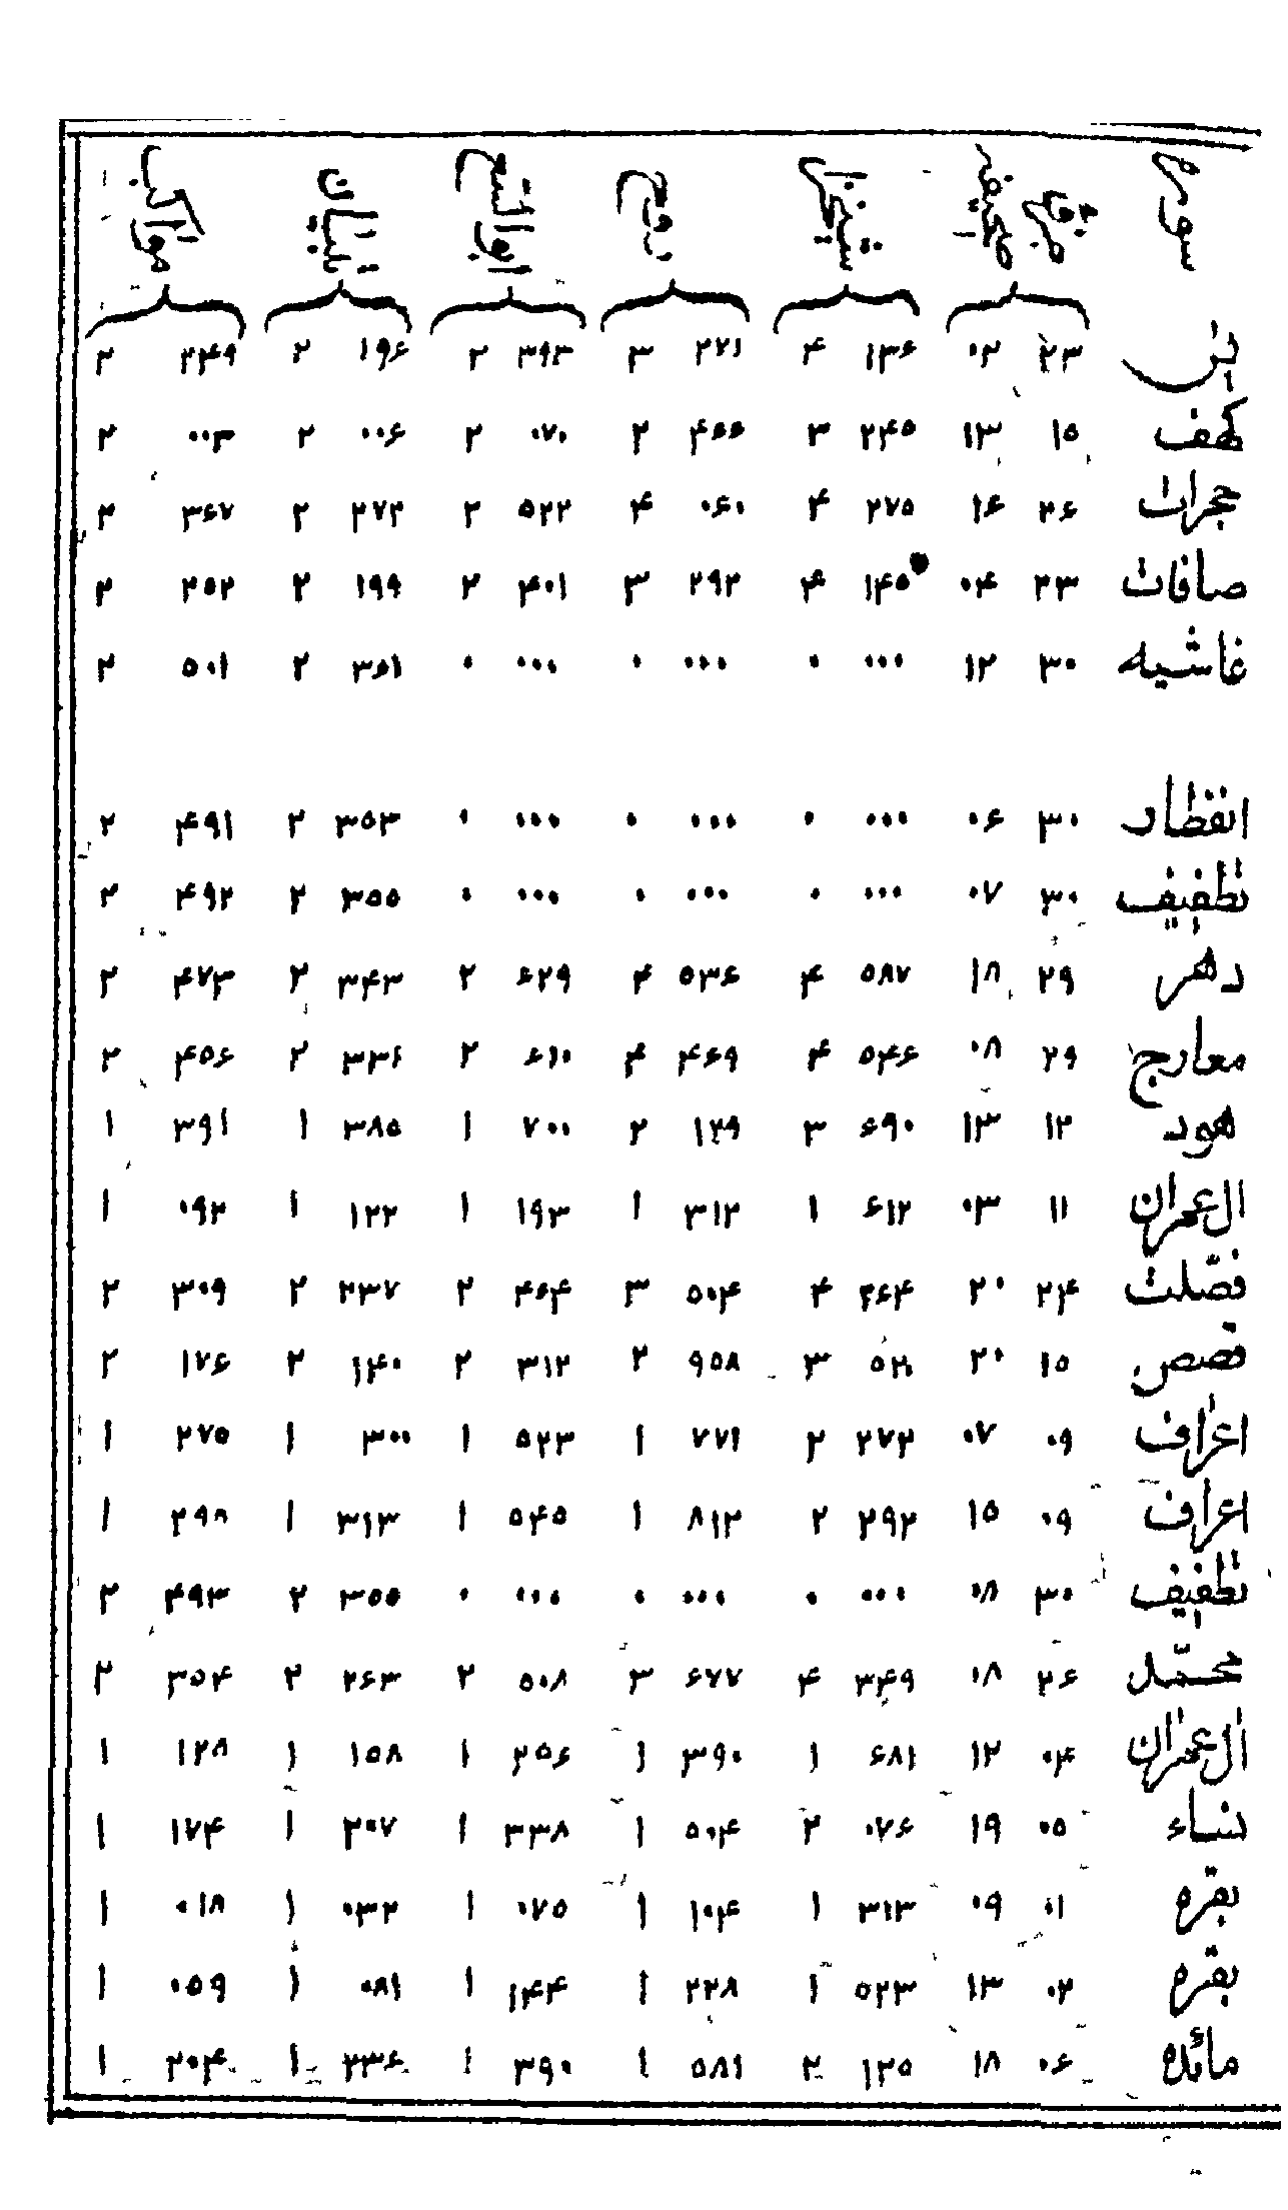 سوره جزو صفحه شیخزاده روح ابوالسعود تبیان مواکب
یس ۲۳ ۰۲ ۱۳۶ ۴ ۲۷۱ ۳ ۳۹۳ ۲ ۱۹۶ ۲ ۲۴۹ ۲
کهف ۱۵ ۱۳ ۲۴۵ ۳ ۴۶۶ ۲ ۰۷۰ ۲ ۰۰۶ ۲ ۰۰۳ ۲
حجرات ۲۶ ۱۶ ۲۷۵ ۴ ۰۶۰ ۴ ۵۲۲ ۲ ۲۷۲ ۲ ۳۶۷ ۲
صافات ۲۳ ۰۴ ۱۴۵ ۴ ۲۹۲ ۳ ۴۰۱ ۲ ۱۹۹ ۲ ۲۵۲ ۲
غاشیه ۳۰ ۱۲ ۰۰۰ ۰ ۰۰۰ ۰ ۰۰۰ ۰ ۳۶۱ ۲ ۵۰۱ ۲
انفطار ۳۰ ۰۶ ۰۰۰ ۰ ۰۰۰ ۰ ۰۰۰ ۰ ۳۵۳ ۲ ۴۹۱ ۲
تطفیف ۳۰ ۰۷ ۰۰۰ ۰ ۰۰۰ ۰ ۰۰۰ ۰ ۳۵۵ ۲ ۴۹۲ ۲
دهر ۲۹ ۱۸ ۵۸۷ ۴ ۵۳۶ ۴ ۶۲۹ ۲ ۳۴۳ ۲ ۴۷۳ ۲
معارج ۲۹ ۰۸ ۵۴۶ ۴ ۴۶۹ ۴ ۶۱۰ ۲ ۳۳۶ ۲ ۴۵۶ ۲
هود ۱۲ ۱۳ ۶۹۰ ۳ ۱۲۹ ۲ ۷۰۰ ۱ ۳۸۵ ۱ ۳۹۱ ۱
ال عمران ۱۱ ۰۳ ۶۱۲ ۱ ۳۱۲ ۱ ۱۹۳ ۱ ۱۲۲ ۱ ۰۹۲ ۱
فصّلت ۲۴ ۲۰ ۲۶۴ ۴ ۵۰۴ ۳ ۴۶۴ ۲ ۲۳۷ ۲ ۳۰۹ ۲
قصص ۱۵ ۲۰ ۳ ۹۵۸ ۲ ۳۱۲ ۲ ۱۴۰ ۲ ۱۷۶ ۲
اعراف ۰۹ ۰۷ ۲۷۲ ۲ ۷۷۱ ۱ ۵۲۳ ۱ ۳۰۰ ۱ ۲۷۵ ۱
اعراف ۰۹ ۱۵ ۲۹۲ ۲ ۸۱۲ ۱ ۵۴۵ ۱ ۳۱۳ ۱ ۲۹۸ ۱
تطفیف ۳۰ ۰۸ ۰۰۰ ۰ ۰۰۰ ۰ ۰۰۰ ۰ ۳۵۵ ۲ ۴۹۳ ۲
محمّد ۲۶ ۰۸ ۳۴۹ ۴ ۶۷۷ ۳ ۵۰۸ ۲ ۲۶۳ ۲ ۳۵۴ ۲
ال عمران ۰۴ ۱۲ ۶۸۱ ۱ ۳۹۰ ۱ ۲۵۶ ۱ ۱۵۸ ۱ ۱۲۸ ۱
نساء ۰۵ ۱۹ ۰۷۶ ۲ ۵۰۴ ۱ ۳۳۸ ۱ ۲۰۷ ۱ ۱۷۴ ۱
بقره ۰۱ ۰۹ ۳۱۳ ۱ ۱۰۴ ۱ ۰۷۵ ۱ ۰۳۲ ۱ ۰۱۸ ۱
بقره ۰۲ ۱۳ ۵۲۳ ۱ ۲۲۸ ۱ ۱۴۴ ۱ ۰۸۱ ۱ ۰۵۹ ۱
مائده ۰۶ ۱۸ ۱۲۵ ۲ ۵۸۱ ۱ ۳۹۰ ۱ ۲۳۶ ۱ ۲۰۴ ۱